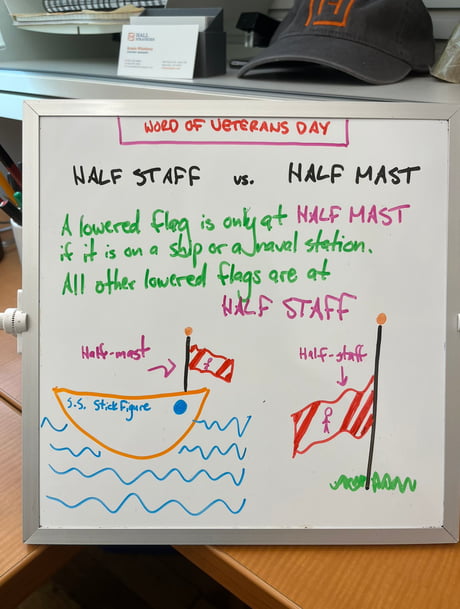 HALL
STRATEGIES
WORD OF VETERANS DAY
HALF STAFF vs. HALF MAST
A lowered flag is only at HALF MAST
if it is on a ship or a naval station.
All other lowered flags are at
HALF STAFF
Half-mast
Half-staff
S.S. Stickfigure